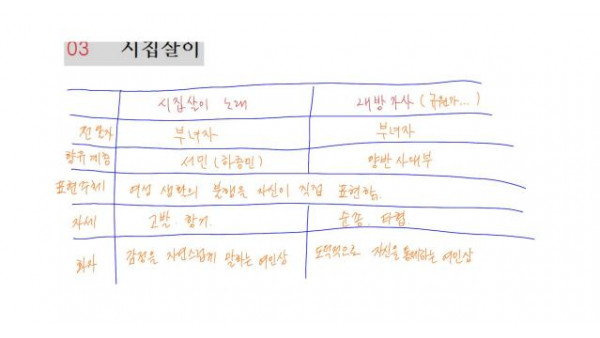 03 시집살이
시집살이 노래 내방가사 (규원가...)
전승자 부녀자 부녀자
향유계층 서민 (하층민) 양반 사대부
표현주체 여성 생활의 불행을 자신이 직접 표현함.
자세 고발. 항거 순종, 타협
화자 감정을 자연스럽게 말하는 여인상 도덕적으로 자신을 통제하는 여인상